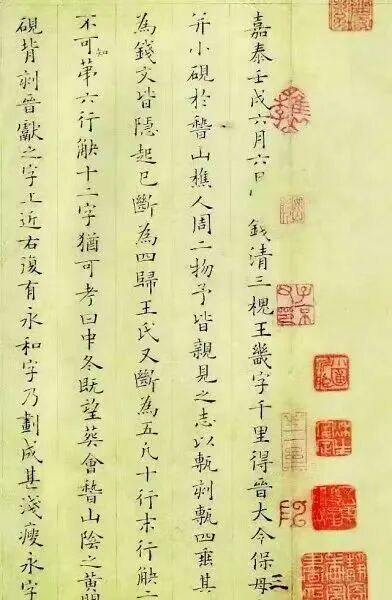 嘉泰壬戌六月六日錢清三槐王畿字千里得晉大令保母
并小硯於稽山樵人周二物予皆親見之志以甎刻甎四垂其
為錢文皆隱起已斷為四歸王氏又斷為五凡十行末行缺二
不可知第六行缺十二字猶可考曰中冬既望葬會稽山陰之黃閍
硯背刻晉獻之字上近右復有永和字乃劃成甚淺瘦永字